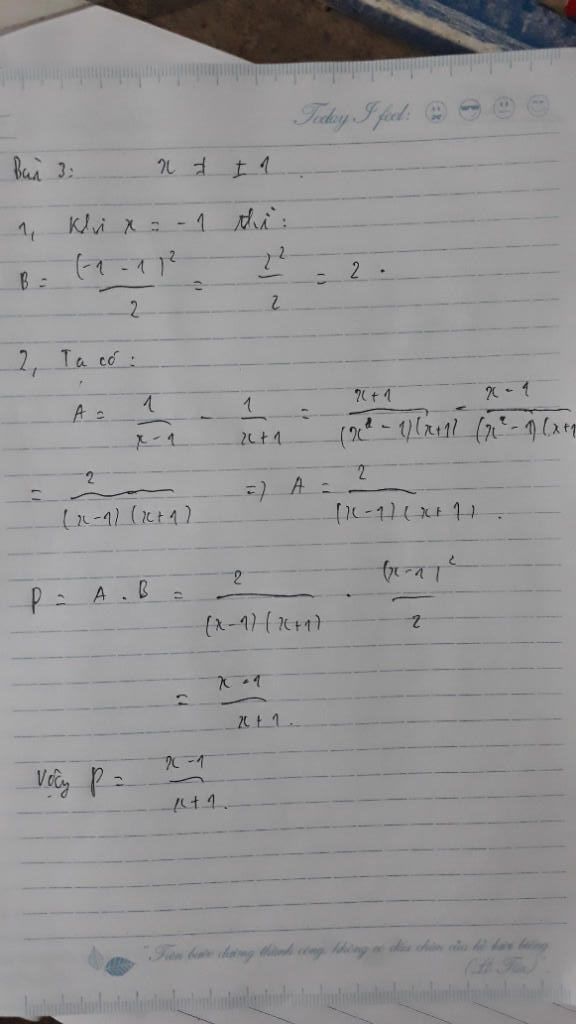 Today I feel:
Bài 3: x ≠ ± 1
1, Khi x = -1 thì:
B = (-1 - 1)² / 2 = 2² / 2 = 2 .
2, Ta có:
A = 1 / (x-1) - 1 / (x+1) = (x+1) / (x² - 1)(x+1) - (x - 1) / (x² - 1)(x+1
= 2 / (x-1)(x+1) => A = 2 / (x-1)(x+1) .
P = A . B = 2 / (x-1)(x+1) . (x-1)² / 2
= (x-1) / (x+1) .
Vậy P = (x-1) / (x+1) .
"Trên bước đường thành công, không có dấu chân của kẻ lười biếng
(Lỗ Tấn)